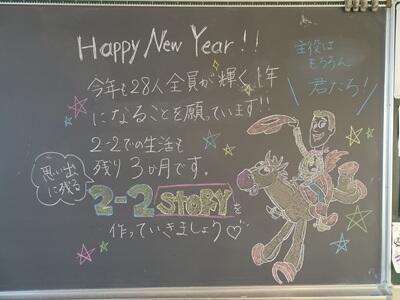 Happy New Year!!
今年も28人全員が輝く1年
になることを願っています!!
2-2での生活も
残り3か月です。
思い出
に残る
2-2 STORYを
作っていきましょう♡
主役は
もちろん
君たち!